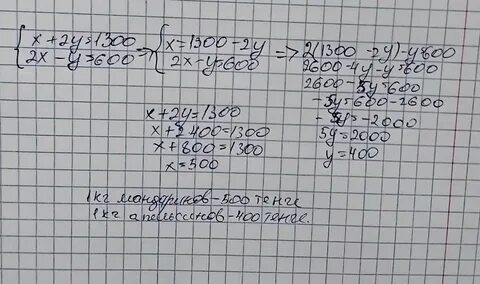 { x+2y=1300 => { x=1300-2y => 2(1300-2y)-y=600
{ 2x-y=600 { 2x-y=600
2600-4y-y=600
2600-5y=600
-5y=600-2600
-5y=-2000
5y=2000
y=400
x+2y=1300
x+2·400=1300
x+800=1300
x=500
1кг мандаринов-500 тенге
1кг апельсинов-400 тенге.